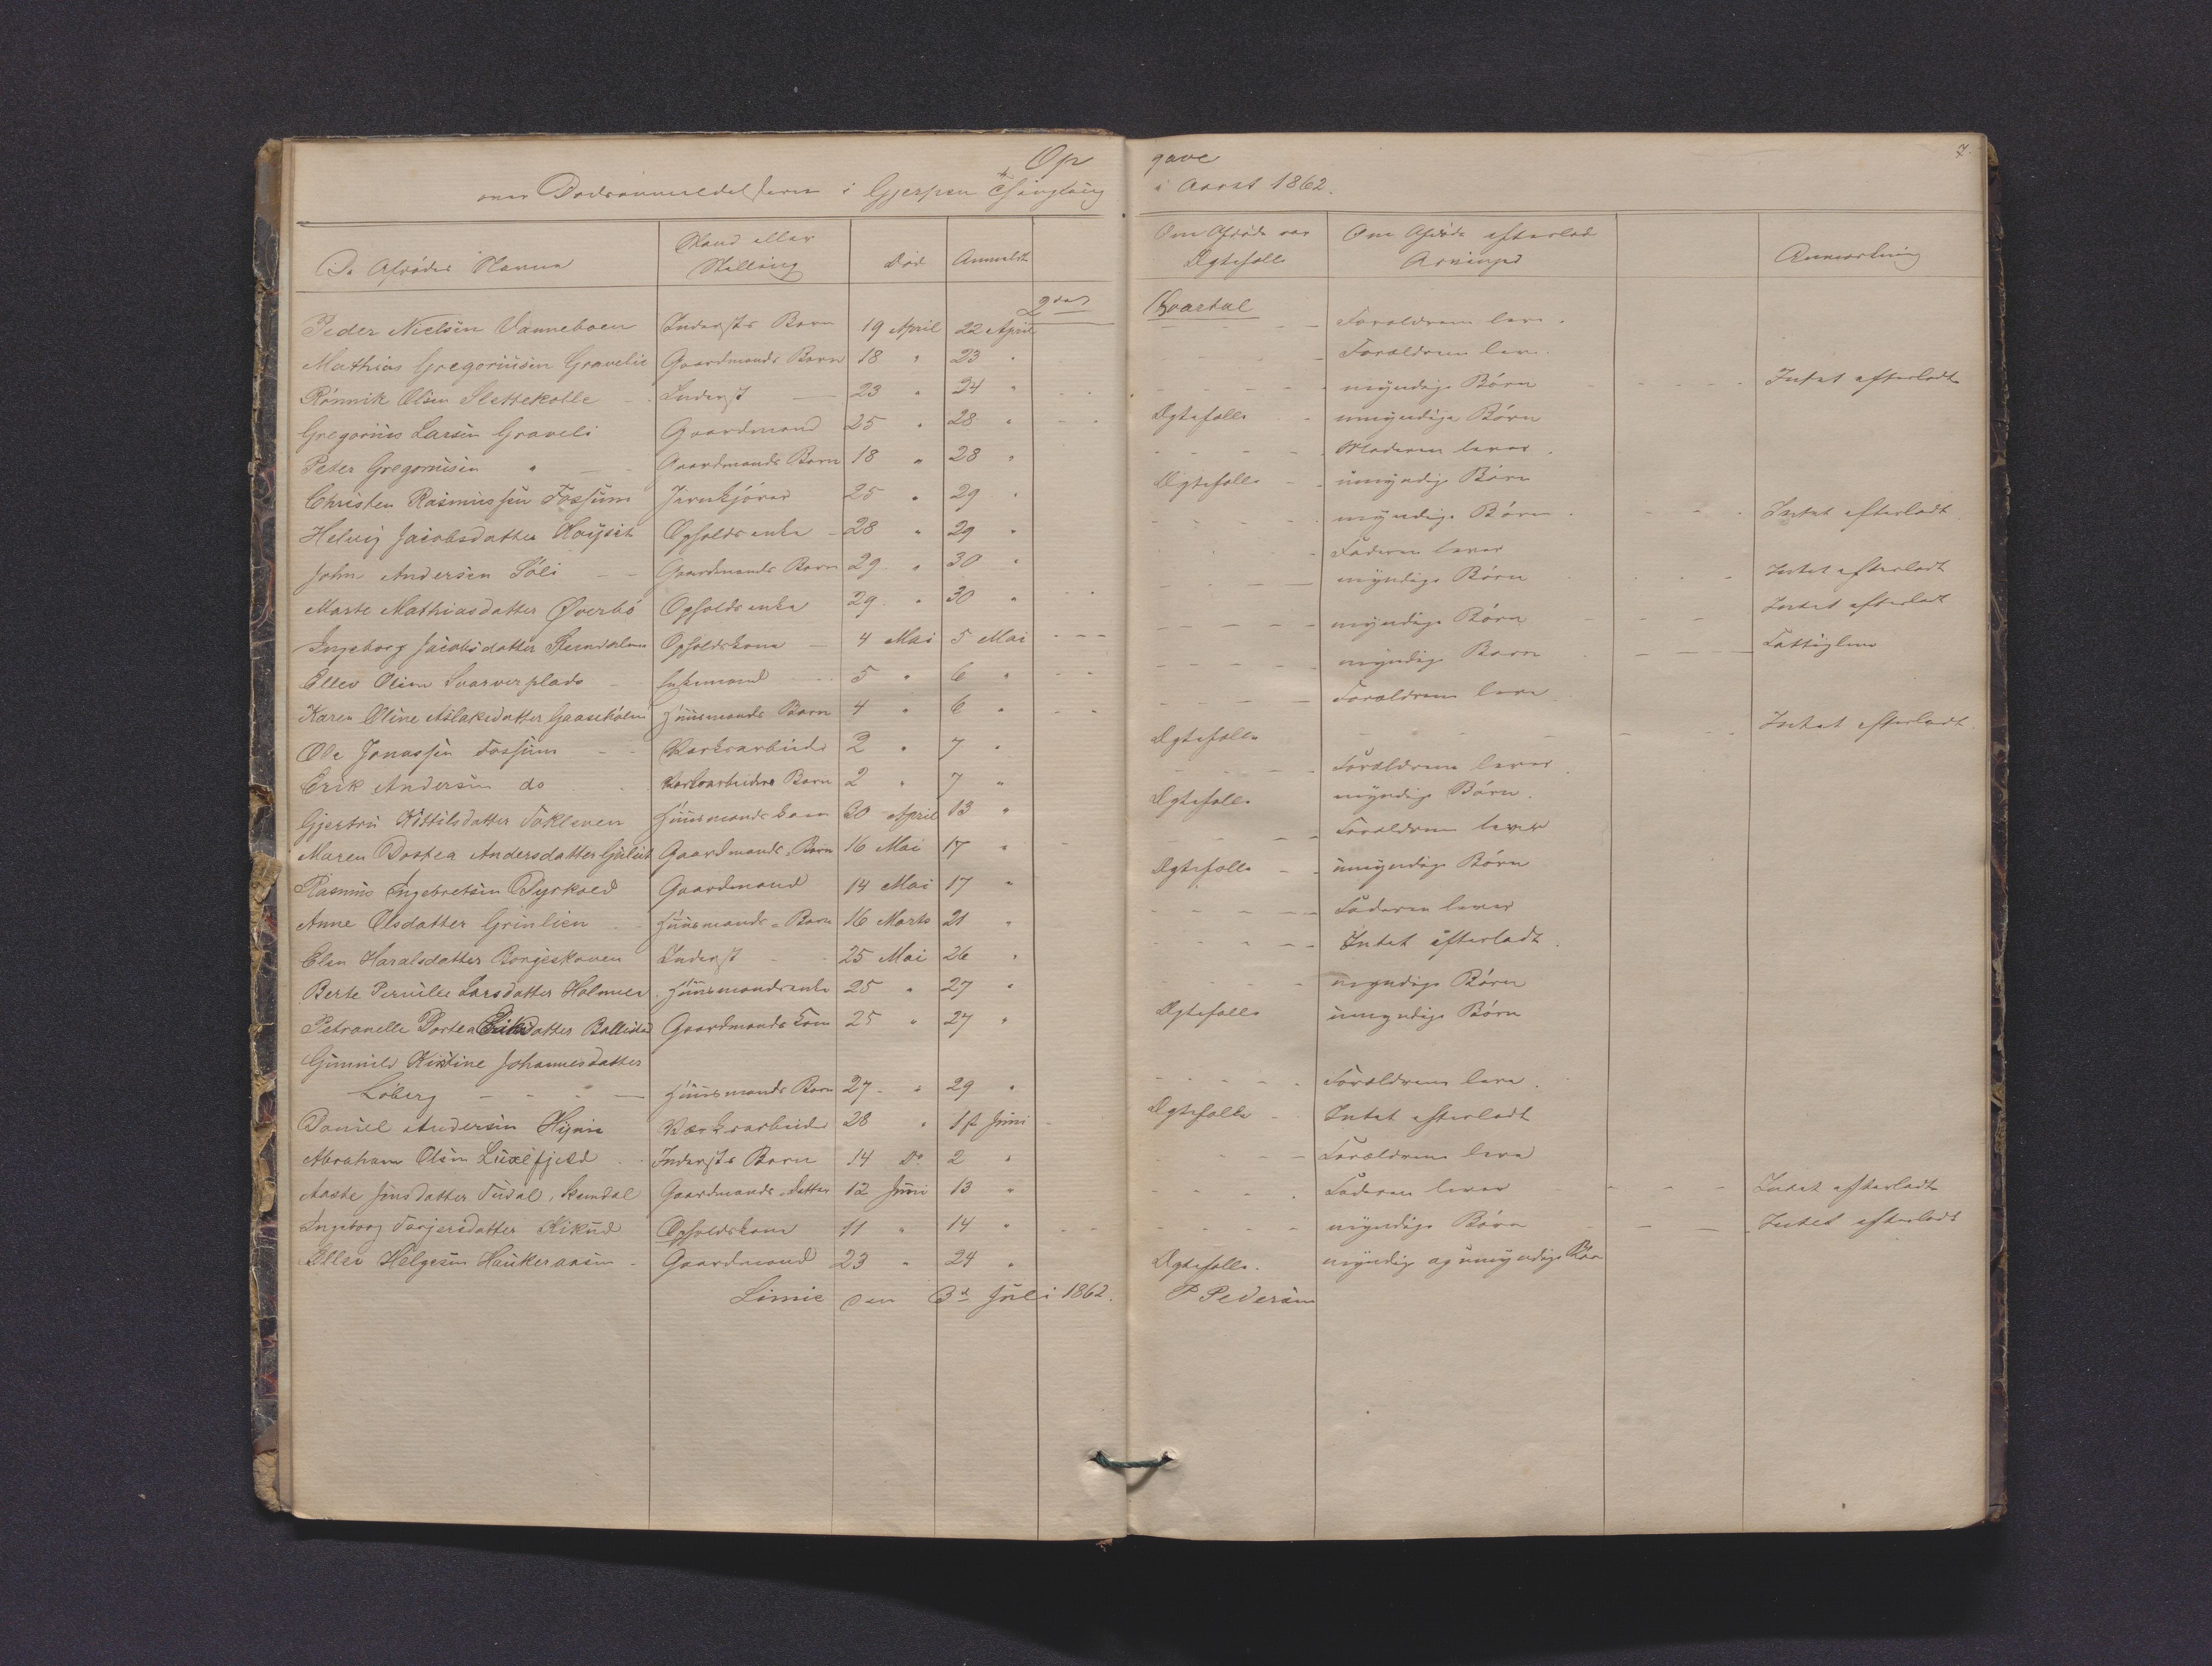 Opgave 7.
over Dødsanmeldelserne i Gjerpen Thinglaug i Aaret 1862.
De Afdødes Navne Stand eller Stilling Død Anmeldt Om Afdøde var Ægtefolk Om Afdøde efterlod Arvinger Anmærkning
2det Kvartal
Peder Nielsen Vanneboen Indersts Barn 19 April 22 April Forældrene leve.
Mathias Gregoriusen Gravelie Gaardmands Barn 18 " 23 " Forældrene leve.
Rönnik Olsen Slettekolle Inderst 23 " 24 " myndige Börn Intet efterladt
Gregorius Larsen Graveli Gaardmand 25 " 28 " Ægtefolk umyndige Börn
Peder Gregoriusen " Gaardmands Barn 18 " 28 " Moderen lever.
Christen Rasmussen Fossum Jernkjörer 25 " 29 " Ægtefolk umyndige Börn
Helvig Jacobsdatter Høyset Opholdsenke 28 " 29 " myndige Börn Intet efterladt
John Andersen Sóli Gaardmands Barn 29 " 30 " Faderen lever
Marte Mathiasdatter Øverbö Opholdsenke 29 " 30 " myndige Börn Intet efterladt
Ingeborg Jacobsdatter Opholdskone 4 Mai 5 Mai myndige Börn Intet efterladt
Ellev Olsen Svarverplads Enkemand 5 " 6 " myndige Barn Fattiglem
Karen Oline Aslaksdatter Gaaseholm Huusmands Barn 4 " 6 " Forældrene leve
Ole Jonassen Fossum Værksarbeider 2 " 7 " Ægtefolk Intet efterladt.
Erik Andersen do Værksarbeiders Barn 2 " 7 " Forældrene lever
Gjertru Kittilsdatter Tokleven Huusmands Kone 30 April 13 " Ægtefolk myndige Börn.
Maren Dortea Andersdatter Gulset Gaardmands Barn 16 Mai 17 " Forældrene lever
Rasmus Ingebretsen Dyrkoed Gaardmand 14 Mai 17 " Ægtefolk umyndige Börn
Anne Olsdatter Grinlien Huusmands Barn 16 Marts 21 " Faderen lever
Elen Haralsdatter Borgeskoven Inderst 25 Mai 26 " Intet efterladt.
Berte Pernille Larsdatter Holmen Huusmandsenke 25 " 27 " myndige Börn
Petronelle Dortea Eriksdatter Ballestad Gaardmands Kone 25 " 27 " Ægtefolk umyndige Börn
Gunnild Kistine Johannesdatter
Löberg Huusmands Barn 27 " 29 " Forældrene leve.
Daniel Andersen Hynie Værksarbeider 28 " 1st Juni Ægtefolk Intet efterladt
Abraham Olsen Luxefjeld Inderste Barn 14 Do 2 " Forældrene leve
Aaste Jensdatter Tudal, Skendal Gaardmands Datter 12 Juni 13 " Faderen lever Intet efterladt
Ingeborg Torjersdatter Rikud Opholdskone 11 " 14 " myndige Börn Intet efterladt
Ellev Helgesen Haukeraasen Gaardmand 23 " 24 " Ægtefolk. myndig og umyndige Börn
Limie den 3d Juli 1862. P Pedersen